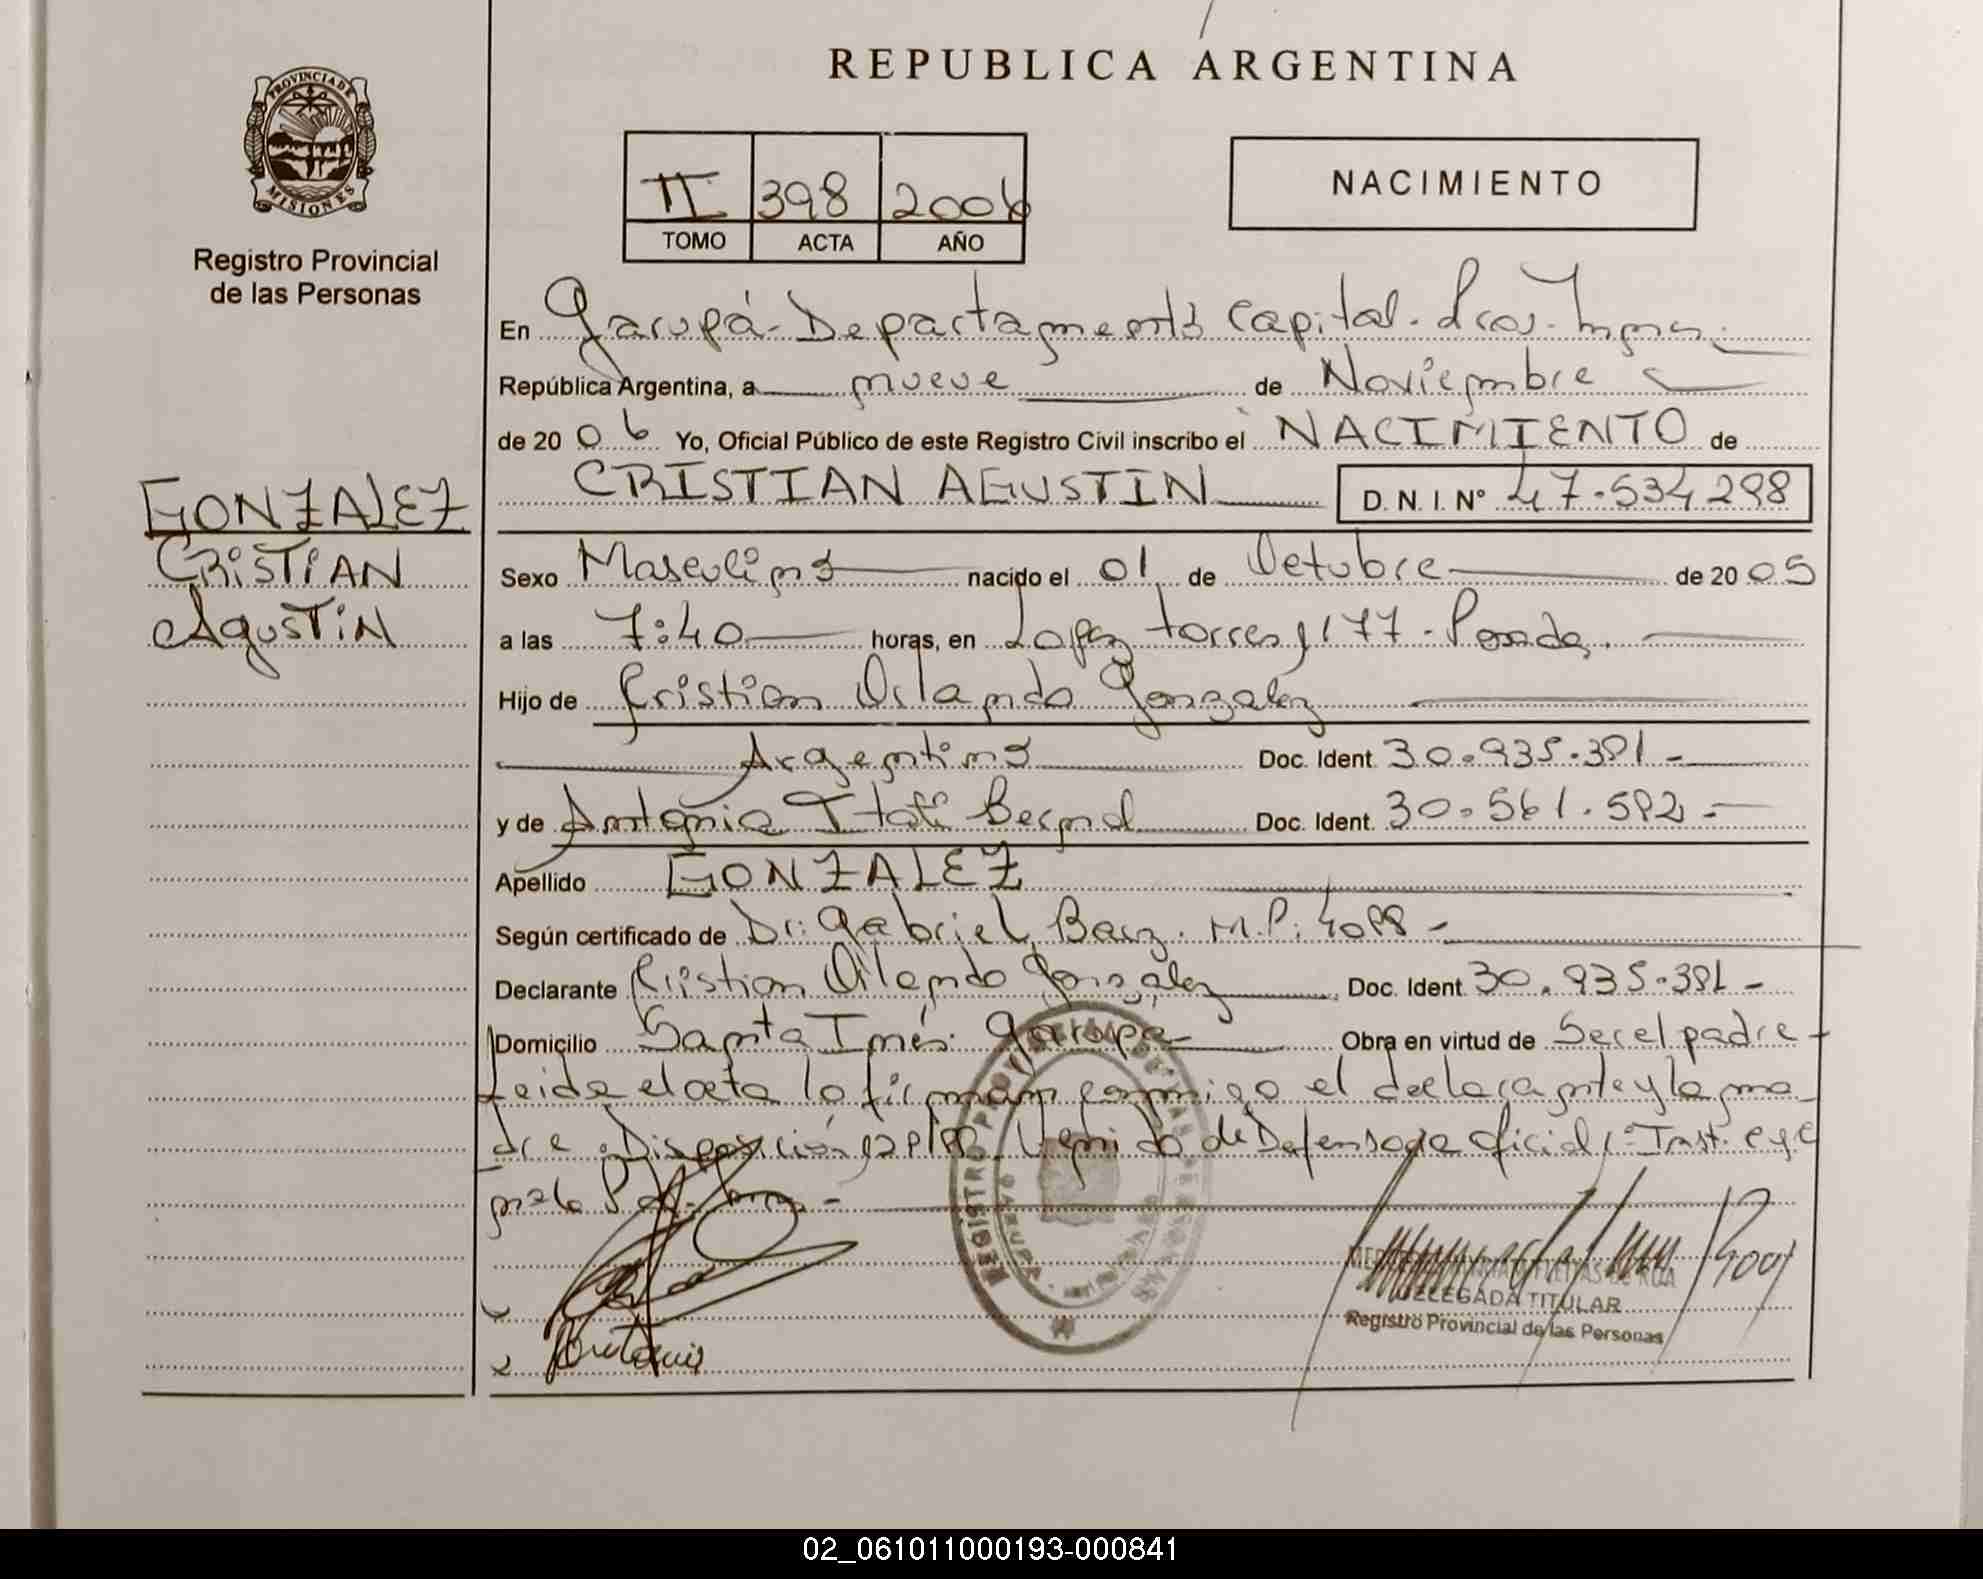 REPUBLICA ARGENTINA
PROVINCIA DE MISIONES
Registro Provincial
de las Personas
II 398 2006
TOMO ACTA AÑO
NACIMIENTO
En Garupá - Departamento Capital - Pcia. Mnes.
República Argentina, a nueve de Noviembre
de 20 06 Yo, Oficial Público de este Registro Civil inscribo el NACIMIENTO de
CRISTIAN AGUSTIN D. N. I. N° 47.534298
GONZALEZ
CRISTIAN
AgusTiN
Sexo Masculino nacido el 01 de Octubre de 20 05
a las 7:40 horas, en Lopez torres 1177 - Posadas
Hijo de Cristian Orlando Gonzalez
Argentino Doc. Ident. 30.935.381 -
y de Antonia Itatí Bernal Doc. Ident. 30.561.582 -
Apellido GONZALEZ
Según certificado de Dr: Gabriel M.P: 4088 -
Declarante Cristian Orlando Gonzalez Doc. Ident. 30.935.381 -
Domicilio Santa Inés - Garupá Obra en virtud de Ser el padre -
Leida el acta la firman conmigo el declarante y la ma
dre. Disposición Venido de Defensoria Oficial 1° Inst.
DELEGADA TITULAR
Registro Provincial de las Personas
02_061011000193-000841